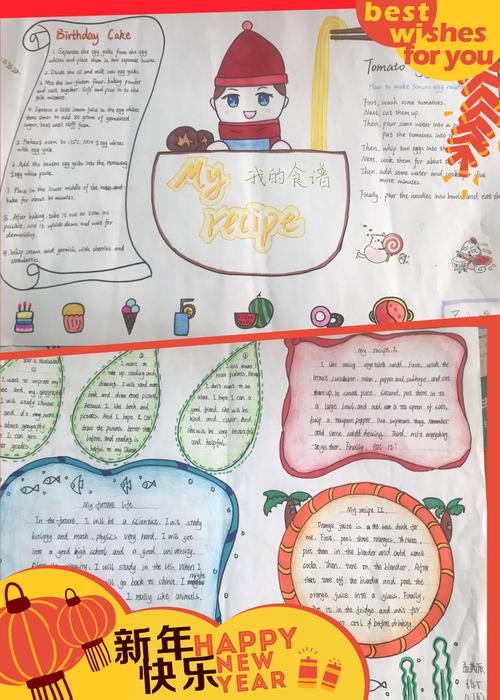 best
wishes
for you
Birthday Cake
1. Separate the egg yolks from the egg
whites and place them in two separate basins.
2. Divide the oil and milk into egg yolks.
3. Mix the low-gluten flour, baking powder
and salt together. Sift and pour in to the
yolk mixture.
4. Squeeze a little lemon juice in the egg whites
three times to add 80 grams of granulated
sugar, beat until stiff foam.
5. Preheat oven to 150℃. Mix 1/3 egg whites
with egg yolk.
6. Add the beaten egg yolks into the remaining
egg white paste.
7. Place in the lower middle of the oven and
bake for about 60 minutes.
8. After baking, take it out as soon as
possible, and is upside down and wait for
demoulding.
9. Whip cream and garnish with cherries and
strawberries.
My 我的食谱
recipe
Tomato
How to make tomato egg
First, wash some tomatoes.
Next, cut them up.
Then, pour some water into a
put the tomatoes into
Then, whip two eggs into the
Next, cook them for about
Then, add some water and cook for five
more minutes.
Finally, pour the noodles into bowls and eat the
I want to improve my
I will study
about geography
I can get
grades.
I want to
take up reading and
drawing. I will read more
book and draw more pictures
because I like the book and
pictures. And I hope I can
draw the pictures better than
before, and reading is
helpful.
I don't want to be
alone. I hope I can a
good friend. She will be
kind and clever. And
she will be very beautiful
and helpful.
My recipe I.
I like eating vegetable salad. First, wash the
cucumber, onion, pepper and cabbage, and cut
them up in small pieces. Second, put them in to
a large bowl, and add one tea spoon of salt,
half a teaspoon pepper. One important thing, remember
add some salad dressing. Third, mix everything
together. Finally, eat it!
My future life.
In the future, I will be a scientist. I will study
biology and math, physics very hard. I will get
into a good high school and a good university.
I will study in the US. When I
will go back to china. I might
I really like animals.
My recipe II.
Orange juice is the best drink for
me. First, peel three oranges. Then,
put them in the blender and add some
soda. Then, turn on the blender. After
that turn off the blender and pour the
orange juice into a glass. Finally,
it in the fridge and wait for
cool it before drinking.
新年
快乐
HAPPY
NEW
YEAR